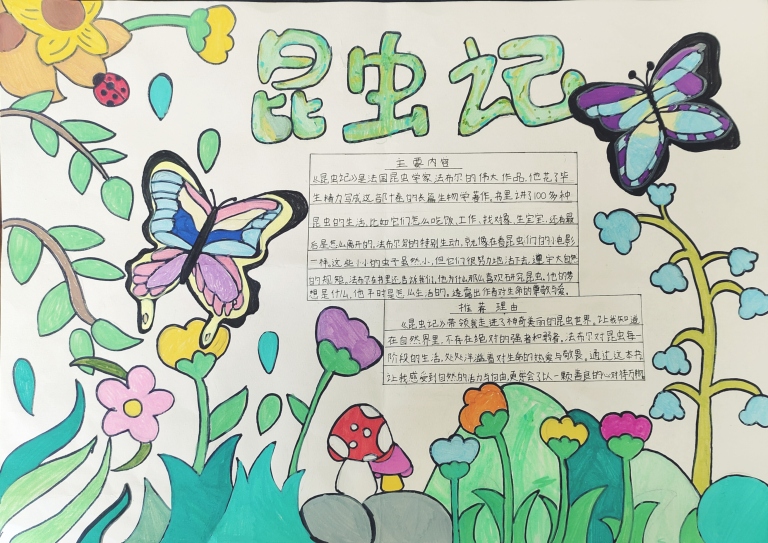 昆虫记
主要内容
《昆虫记》是法国昆虫学家法布尔的伟大作品,他花了毕
生精力写成这部十卷的长篇生物学著作,书里讲了100多种
昆虫的生活,比如它们怎么吃饭、工作、找对象、生宝宝,还有最
后是怎么离开的。法布尔写的特别生动,就像在看昆虫们的小电影
一样。这些小小的虫子虽然小,但它们很努力地活下去,遵守大自然
的规矩。法布尔在书里还告诉我们,他为什么那么喜欢研究昆虫,他的梦
想是什么,他平时是怎么生活的。透露出作者对生命的尊敬与爱。
推荐理由
《昆虫记》带领我走进了神奇美丽的昆虫世界,让我知道
在自然界里,不存在绝对的强者和弱者。法布尔对昆虫每一
阶段的生活,处处洋溢着对生命的热爱与敬畏,通过这本书
让我感受到自然的活力与自由,更学会了以一颗善良的心对待万物